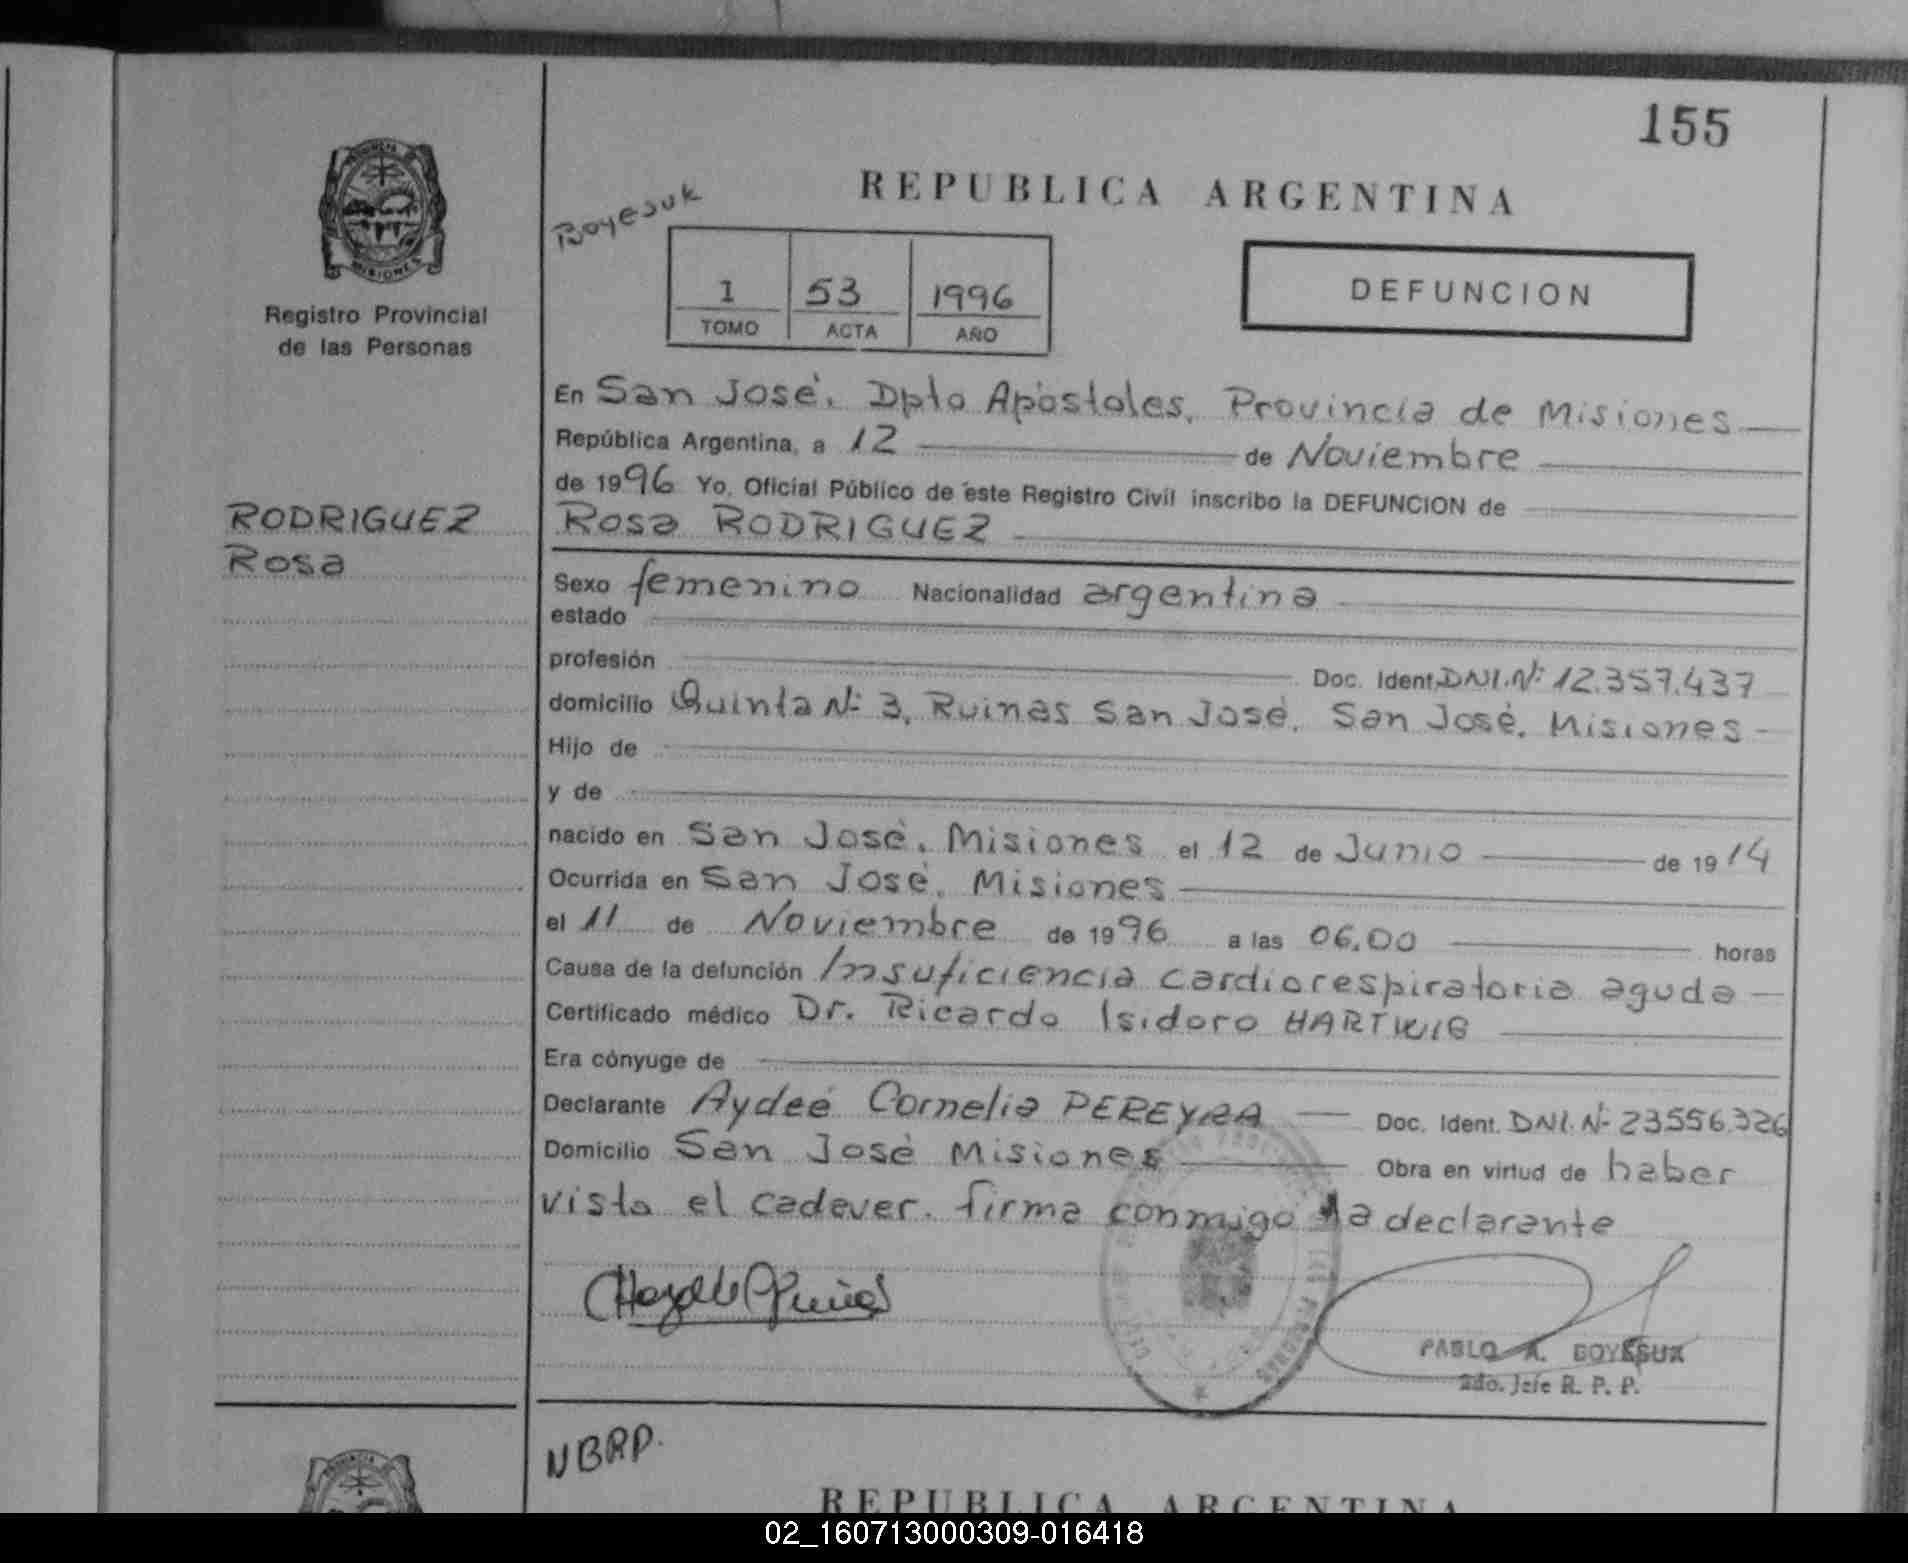 155
PROVINCIA DE
MISIONES
Registro Provincial
de las Personas
Boyesuk
REPUBLICA ARGENTINA
1 53 1996
TOMO ACTA AÑO
DEFUNCION
En San José, Dpto Apóstoles, Provincia de Misiones
República Argentina, a 12 de Noviembre
de 1996 Yo, Oficial Público de este Registro Civil inscribo la DEFUNCION de
RODRIGUEZ
Rosa
Rosa RODRIGUEZ
Sexo femenino Nacionalidad argentina
estado
profesión Doc. Ident. DNI. Nº 12.357.437
domicilio Quinta Nº 3, Ruinas San José, San José, Misiones
Hijo de
y de
nacido en San José, Misiones el 12 de Junio de 1914
Ocurrida en San José, Misiones
el 11 de Noviembre de 1996 a las 06,00 horas
Causa de la defunción Insuficiencia cardiorespiratoria aguda
Certificado médico Dr. Ricardo Isidoro HARTWIG
Era cónyuge de
Declarante Aydeé Cornelia PEREYRA Doc. Ident. DNI. Nº 23556.326
Domicilio San José Misiones Obra en virtud de haber
visto el cadaver. firma conmigo la declarante
PABLO A. BOYESUK
2do. Jefe R. P. P.
NBRP.
REPUBLICA ARGENTINA
02_160713000309-016418